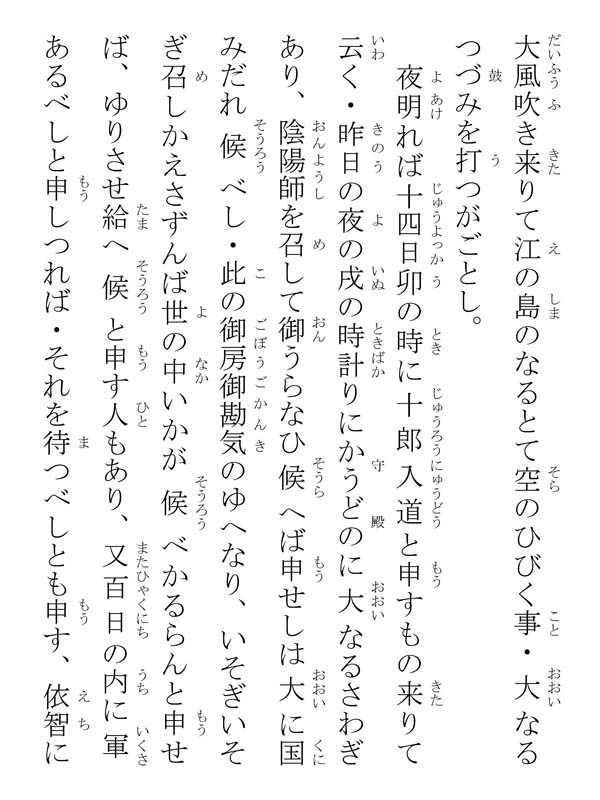 大風吹き来りて江の島のなるとて空のひびく事・大なる
つづみを打つがごとし。
夜明れば十四日卯の時に十郎入道と申すもの来りて
云く・昨日の夜の戌の時計りにかうどのに大なるさわぎ
あり、陰陽師を召して御うらなひ候へば申せしは大に国
みだれ候べし・此の御房御勘気のゆへなり、いそぎいそ
ぎ召しかえさずんば世の中いかが候べかるらんと申せ
ば、ゆりさせ給へ候と申す人もあり、又百日の内に軍
あるべしと申しつれば・それを待つべしとも申す、依智に